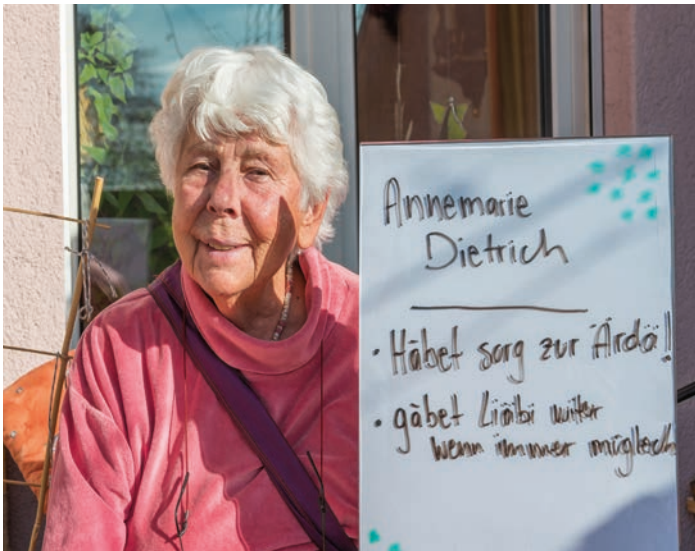 Annemarie
Dietrich
• Häbet sorg zur Ärdä!
• gäbet Liäbi witer
wenn immer müglech